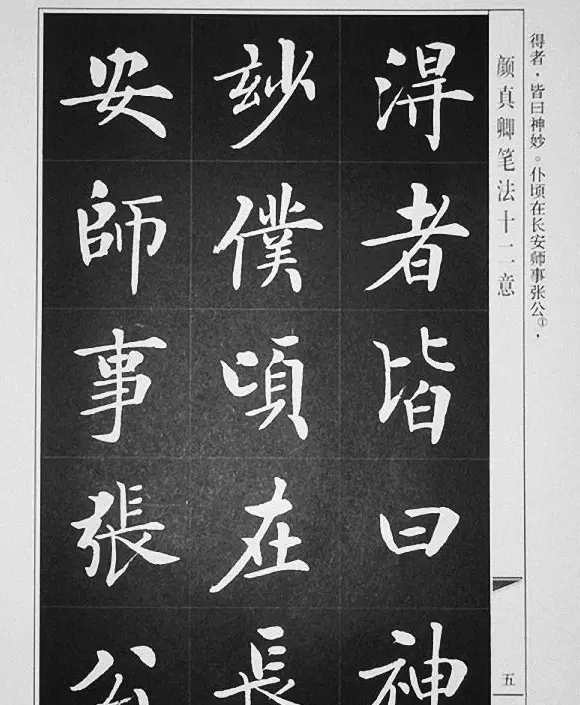 得者，皆曰神妙。仆顷在长安师事张公①，
颜真卿笔法十二意
五
淂者皆曰神
玅僕頃在長
安師事張公